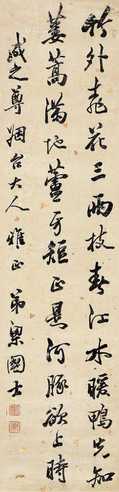 竹外桃花三兩枝春江水暖鴨先知
蔞蒿滿地蘆牙短正是河豚欲上時
之尊姻台大人雅正弟梁國士